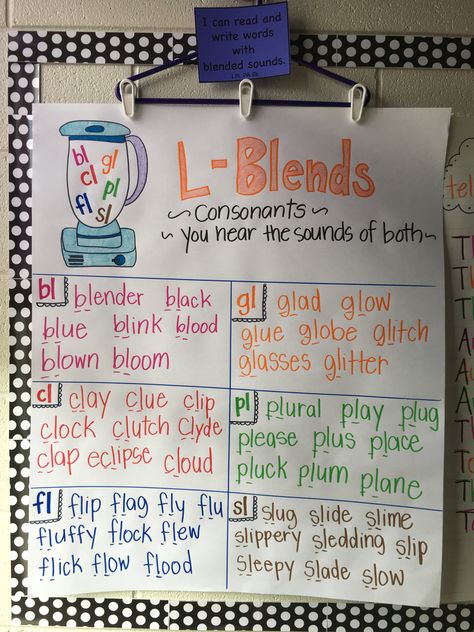 I can read and
write words
with
blended sounds.
bl
gl
cl
pl
fl
sl
L-Blends
~ Consonants ~
~ You hear the sounds of both ~
bl
blender black
blue blink blood
blown bloom
gl
glad glow
glue globe glitch
glasses glitter
cl
clay clue clip
clock clutch Clyde
clap eclipse cloud
pl
plural play plug
please plus place
pluck plum plane
fl
flip flag fly flu
fluffy flock flew
flick flow flood
sl
slug slide slime
slippery sledding slip
sleepy slade slow
tel